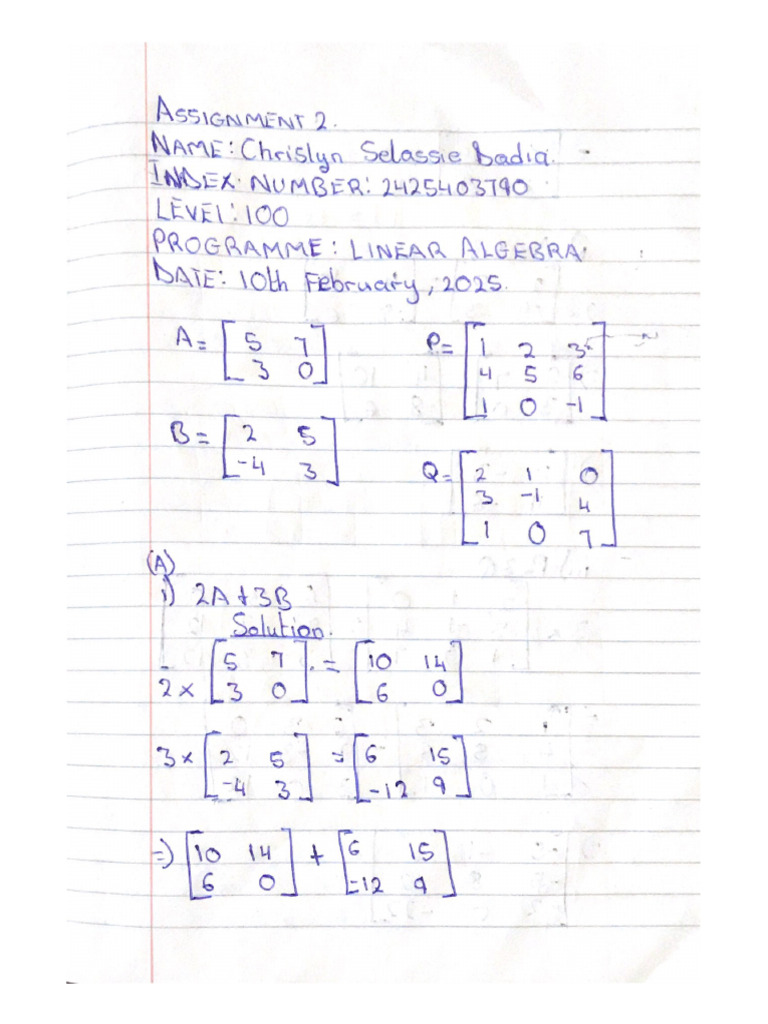 ASSIGNMENT 2.
NAME: Chrislyn Selassie Dadia.
INDEX NUMBER: 2425403790
LEVEL: 100
PROGRAMME: LINEAR ALGEBRA
DATE: 10th February, 2025.
A = [5 7
3 0]
P = [1 2 3
4 5 6
1 0 -1]
B = [2 5
-4 3]
Q = [2 1 0
3 -1 4
1 0 7]
(A)
i) 2A + 3B
Solution.
2 × [5 7
3 0] = [10 14
6 0]
3 × [2 5
-4 3] = [6 15
-12 9]
=) [10 14
6 0] + [6 15
-12 9]